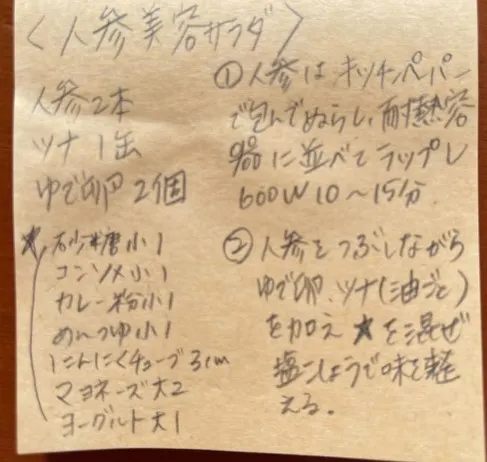 〈人参美容サラダ〉
人参2本
ツナ1缶
ゆで卵2個
★砂糖小1
コンソメ小1
カレー粉小1
めんつゆ小1
にんにくチューブ3cm
マヨネーズ大2
ヨーグルト大1
①人参はキッチンペーパー
で包んでぬらし、耐熱容
器に並べてラップし
600W10〜15分.
②人参をつぶしながら
ゆで卵、ツナ(油ごと)
を加え★を混ぜ
塩こしょうで味を整
える。